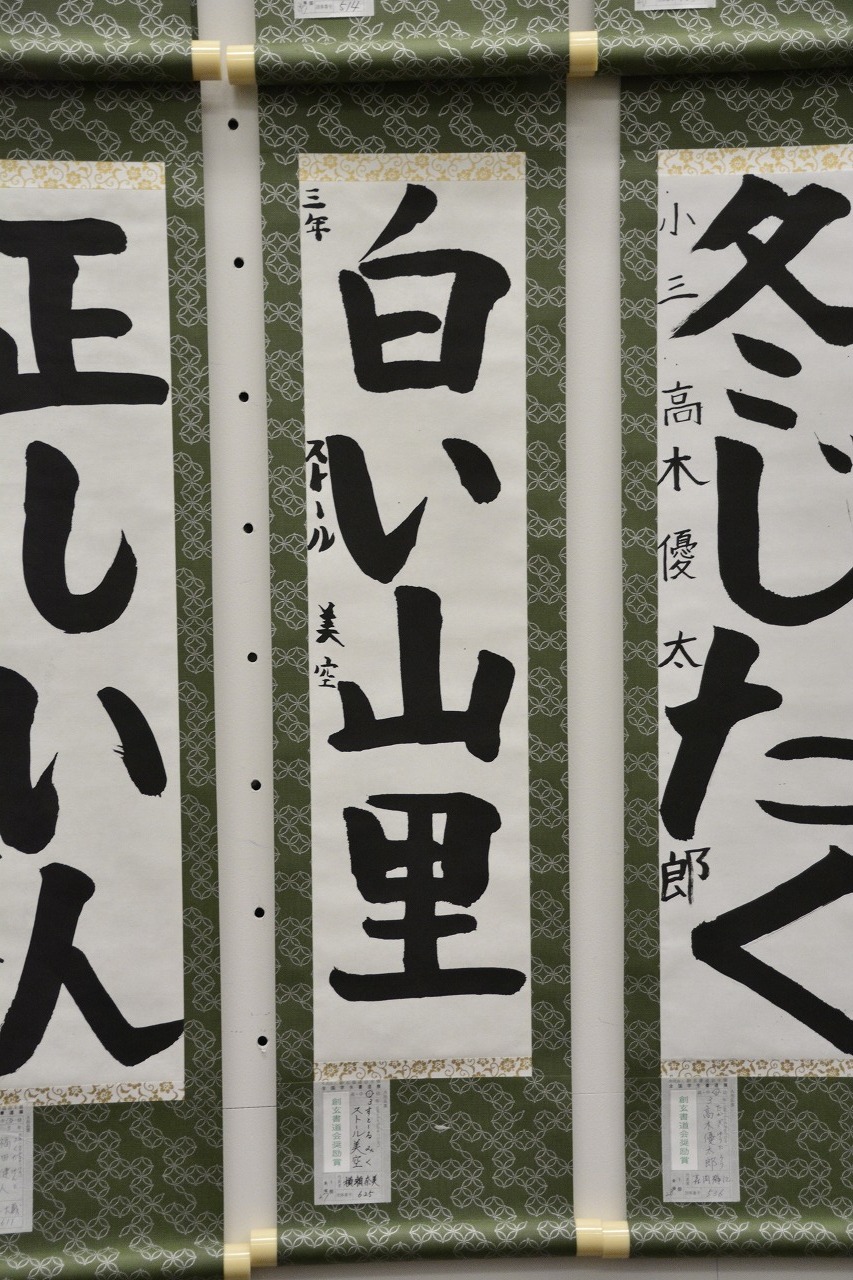 冬じたく
小三 高木優太郎
白い山里
三年 ストール 美空
正しい人
創玄書道会奨励賞
3 高木優太郎
創玄書道会奨励賞
すとーる みく
ストール美空
625
514